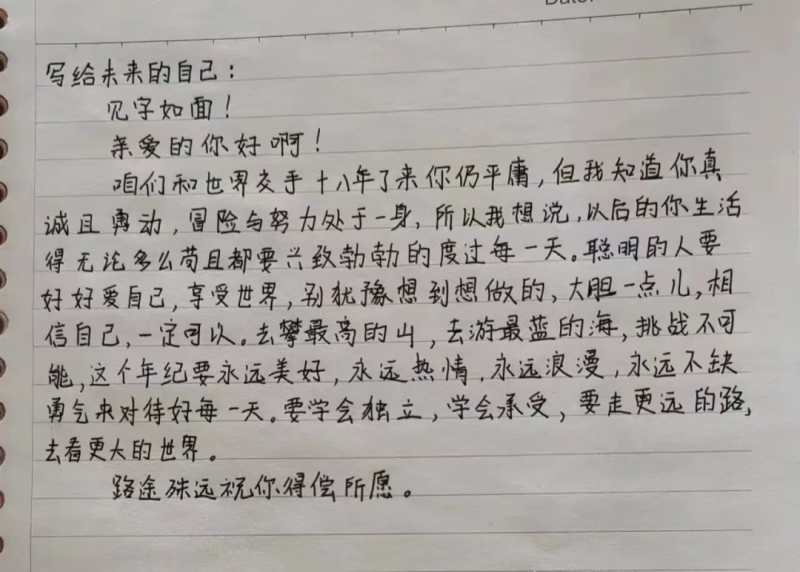 Date:
写给未来的自己:
见字如面!
亲爱的你好啊!
咱们和世界交手十八年了来你仍平庸,但我知道你真
诚且勇动,冒险与努力处于一身,所以我想说,以后的你生活
得无论多么苟且都要兴致勃勃的度过每一天。聪明的人要
好好爱自己,享受世界,别犹豫想到想做的,大胆一点儿,相
信自己,一定可以。去攀最高的山,去游最蓝的海,挑战不可
能,这个年纪要永远美好,永远热情,永远浪漫,永远不缺
勇气来对待好每一天。要学会独立,学会承受,要走更远的路,
去看更大的世界。
路途殊远祝你得偿所愿。